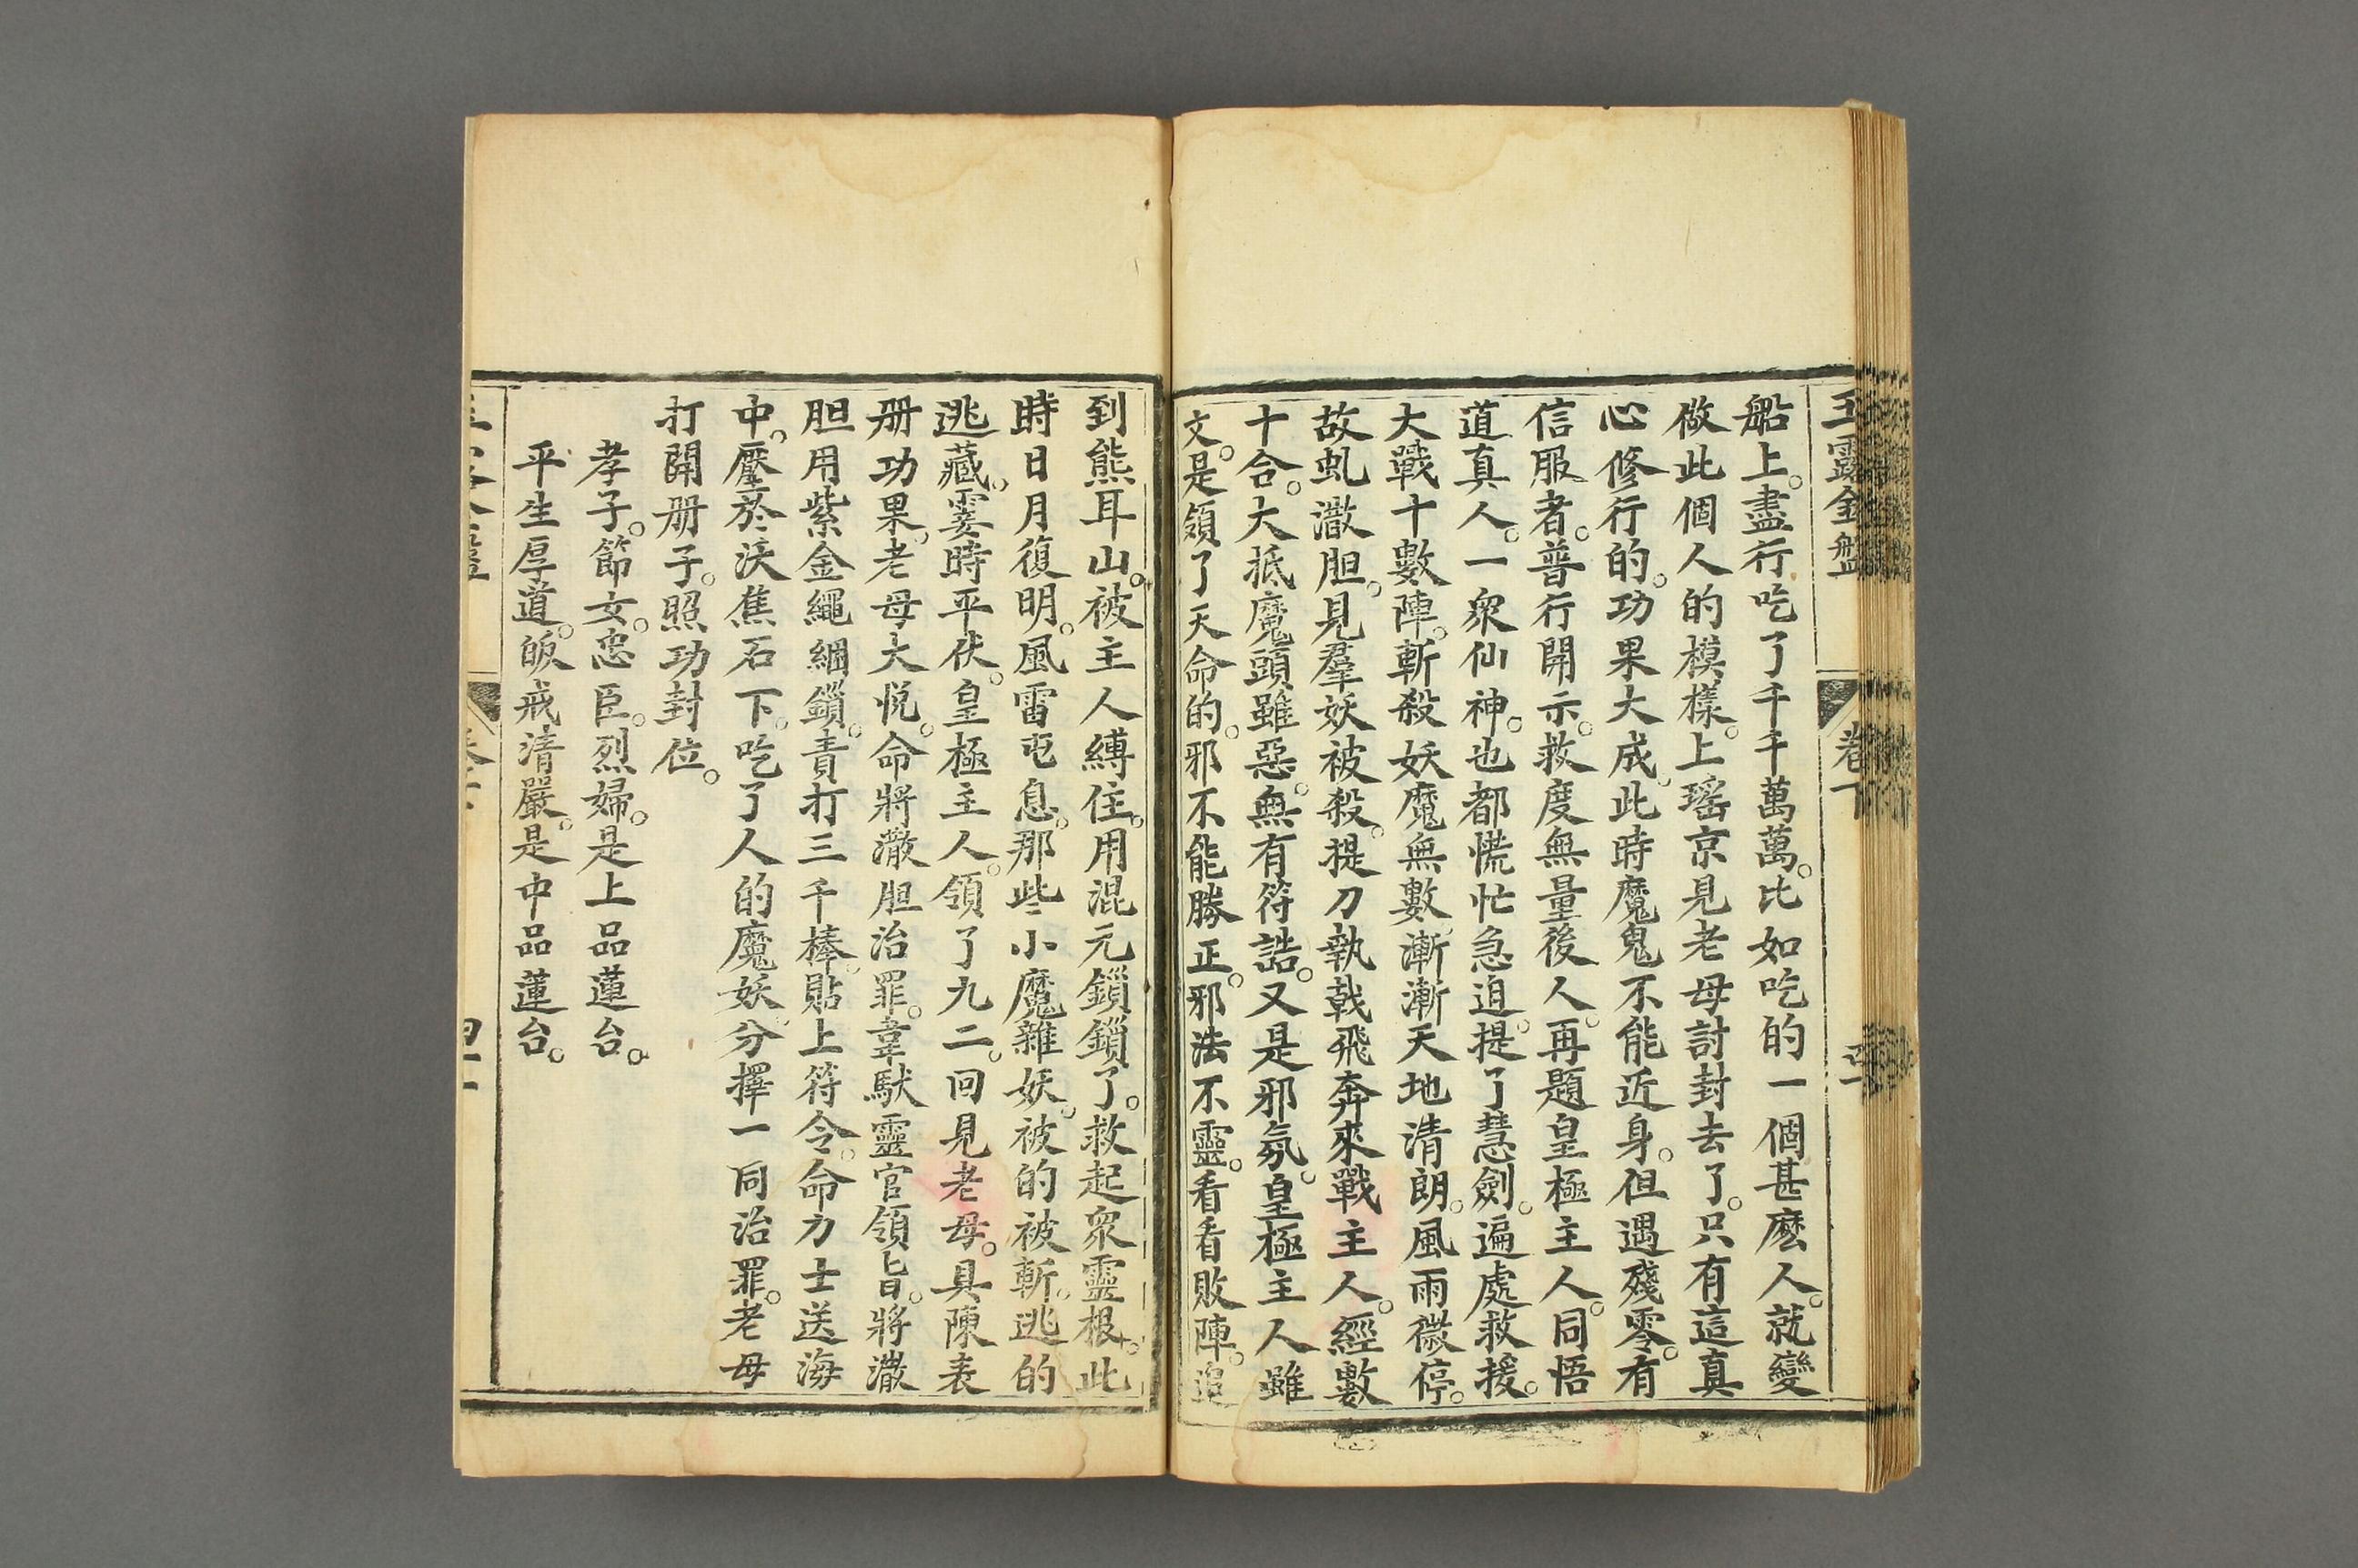 玉露金盤
卷下
船上。盡行吃了千千萬萬。比如吃的一個甚麽人。就變
做此個人的模樣。上瑤京見老母討封去了。只有這真
心修行的。功果大成。此時魔鬼不能近身。但遇殘零。有
信服者。普行開示。救度無量後人。再題皇極主人。同悟
道真人。一衆仙神。也都慌忙急迫。提了慧劍。遍處救援。
大戰十數陣。斬殺妖魔無數。漸漸天地清朗。風雨微停。
故虬潵胆。見羣妖被殺。提刀執戟飛奔來戰主人。經數
十合。大抵魔頭雖惡。無有符誥。又是邪氛。皇極主人雖
文。是領了天命的。邪不能勝正。邪法不靈。看看敗陣。追
到熊耳山。被主人縛住。用混元鎖鎖了。救起衆靈根。此
時日月復明。風雷屯息。那些小魔雜妖。被的被斬。逃的
逃藏。霎時平伏。皇極主人。領了九二。回見老母。具陳表
册功果。老母大悅。命將潵胆治罪。韋馱靈官領旨。將潵
胆用紫金繩綑鎖。責打三千棒。貼上符令。命力士送海
中。壓於沃焦石下。吃了人的魔妖。分擇一同治罪。老母
打開册子。照功封位。
孝子。節女。忠臣。烈婦。是上品蓮台。
平生厚道。皈戒清嚴。是中品蓮台。